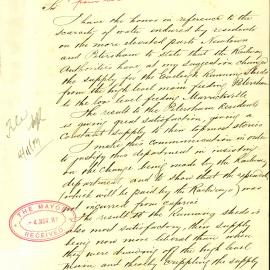 To
I have the honor in reference to the
scarcity of water endured by residents
on the more elevated parts Newtown
and Petersham to state that the Railway
Authorities have at my suggestion changed
the supply for the Eveleigh Running Sheds
from the high level main feeding Petersham
to the low level feeding Marrickville
The result to the Petersham Residents
is great satisfaction, giving a
Constant supply to their topmost stories
I make this communication in order
to justify this department in insisting
on the change being made by the Railway
department, and to show that the expense
(which will be paid by the Railways) was
incurred from caprice
The result to the Running Sheds is
also most satisfactory, their supply
being now more liberal than when
they were drawing off the high level
and thereby crippling the supply
File
THE MAYOR
4 NOV. 87
RECEIVED